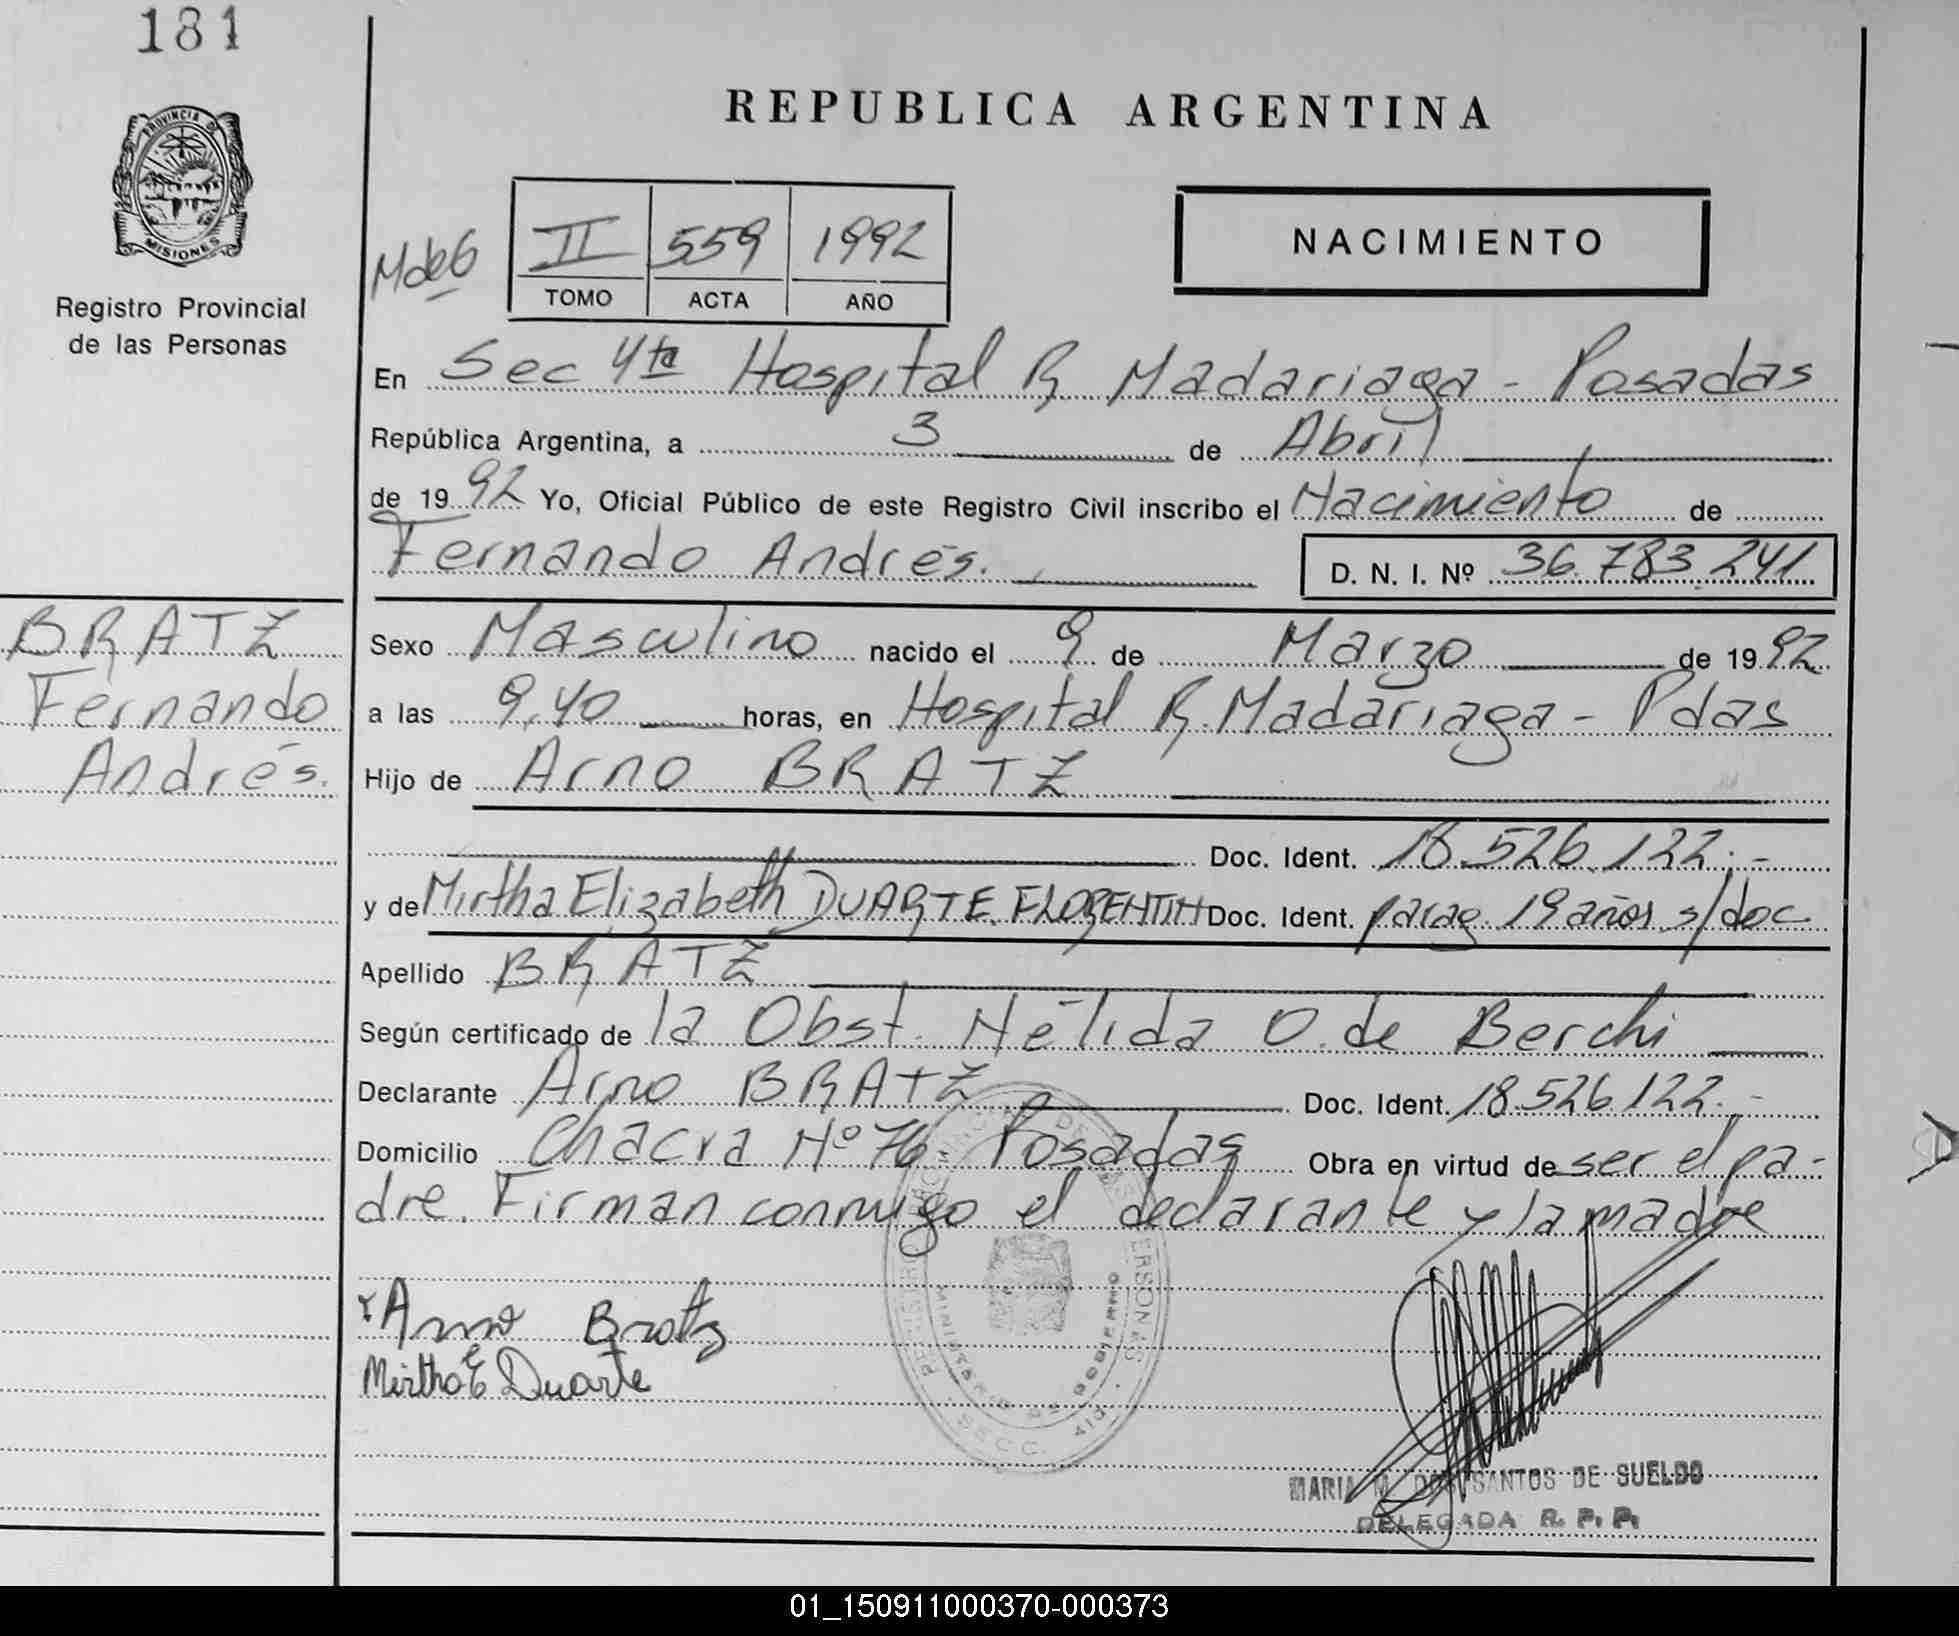 181
PROVINCIA DE
MISIONES
Registro Provincial
de las Personas
REPUBLICA ARGENTINA
MdeG
II 559 1992
TOMO ACTA AÑO
NACIMIENTO
En Sec 4ta Hospital R. Madariaga - Posadas
República Argentina, a 3 de Abril
de 19 92 Yo, Oficial Público de este Registro Civil inscribo el Nacimiento de
Fernando Andrés. D. N. I. Nº 36.783.241
BRATZ
Fernando
Andrés.
Sexo Masculino nacido el 9 de Marzo de 19 92
a las 9,40 horas, en Hospital R. Madariaga - Pdas
Hijo de Arno BRATZ
Doc. Ident. 18.526.122.-
y de Mirtha Elizabeth DUARTE FLORENTIN Doc. Ident. parag. 19 años s/doc.
Apellido BRATZ
Según certificado de la Obst. Nélida O. de Berchi
Declarante Arno BRATZ Doc. Ident. 18.526.122.-
Domicilio Chacra Nº 76. Posadas Obra en virtud de ser el pa-
dre. Firman conmigo el declarante y la madre
Arno Bratz
Mirtha E Duarte
MINISTERIO DE GOBIERNO
SECC. 4ta.
MARIA M. DOS SANTOS DE SUELDO
DELEGADA R. P. P.
01_150911000370-000373